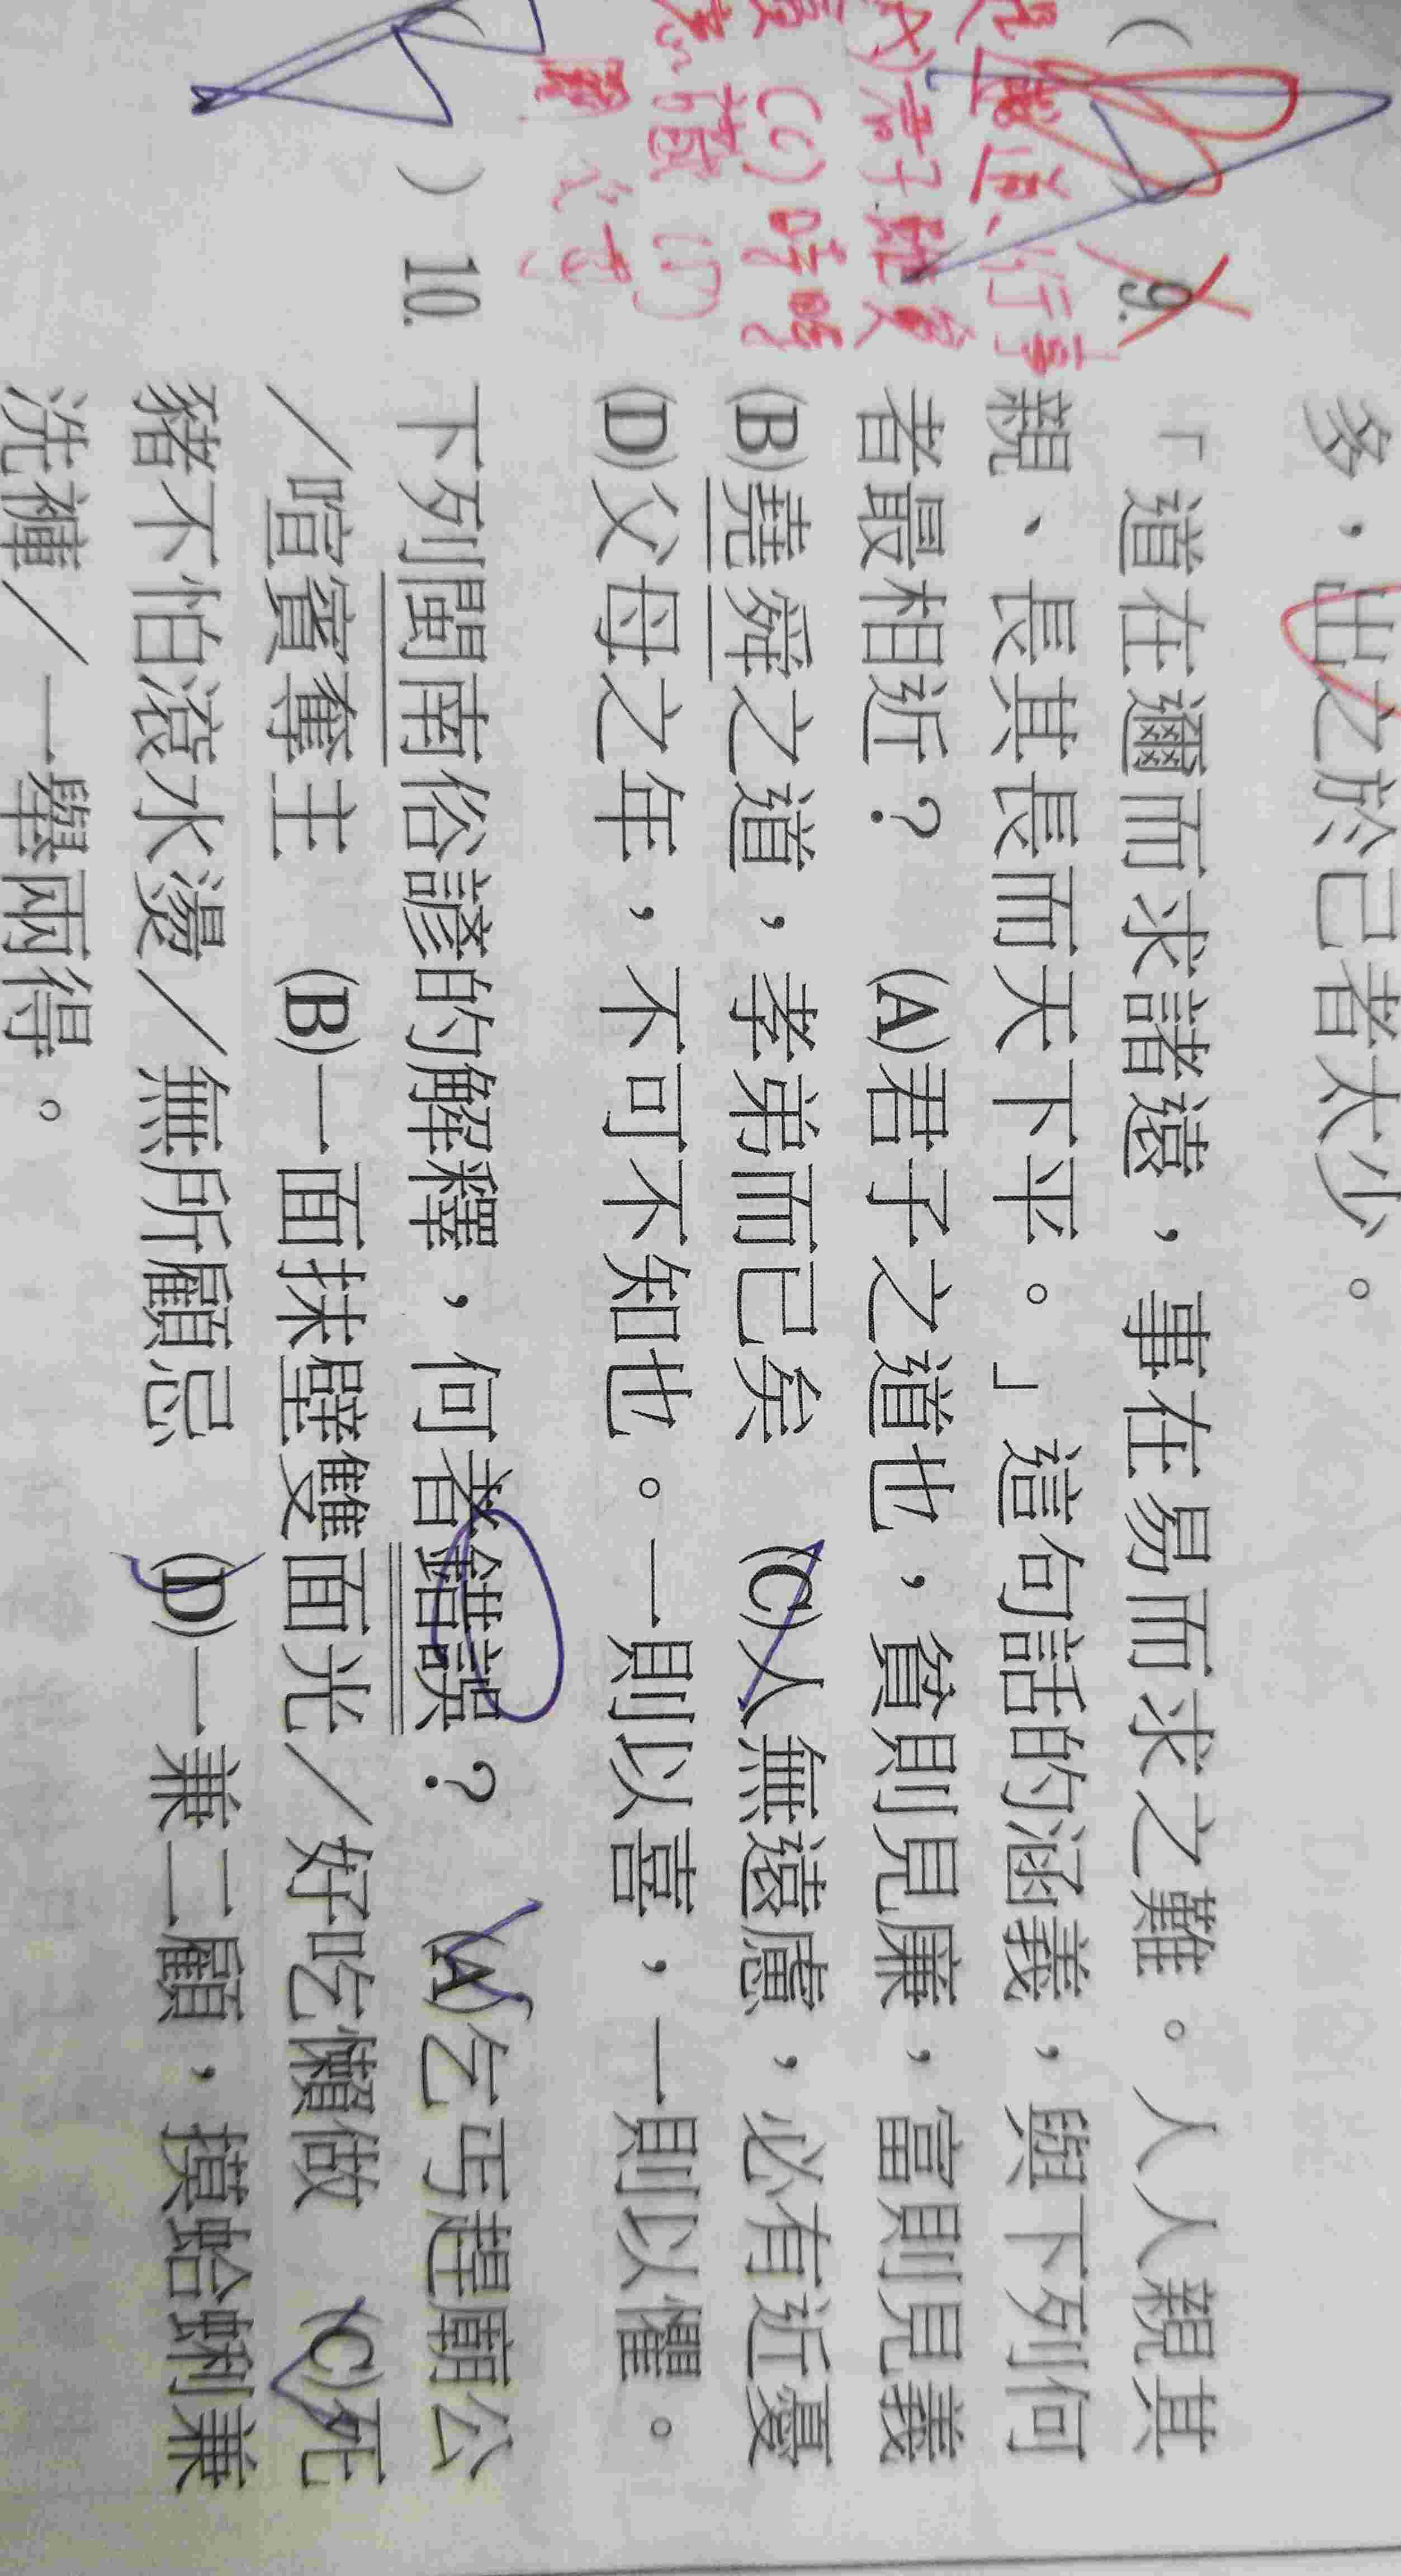 多，出之於己者太少。
( ) 9. 「道在邇而求諸遠，事在易而求之難。人人親其
親、長其長而天下平。」這句話的涵義，與下列何
者最相近？ (A)君子之道也，貧則見廉，富則見義
(B)堯舜之道，孝弟而已矣 (C)人無遠慮，必有近憂
(D)父母之年，不可不知也。一則以喜，一則以懼。
( ) 10. 下列閩南俗諺的解釋，何者錯誤？ (A)乞丐趕廟公
／喧賓奪主 (B)一面抹壁雙面光／好吃懶做 (C)死
豬不怕滾水燙／無所顧忌 (D)一兼二顧，摸蛤蜊兼
洗褲／一舉兩得。